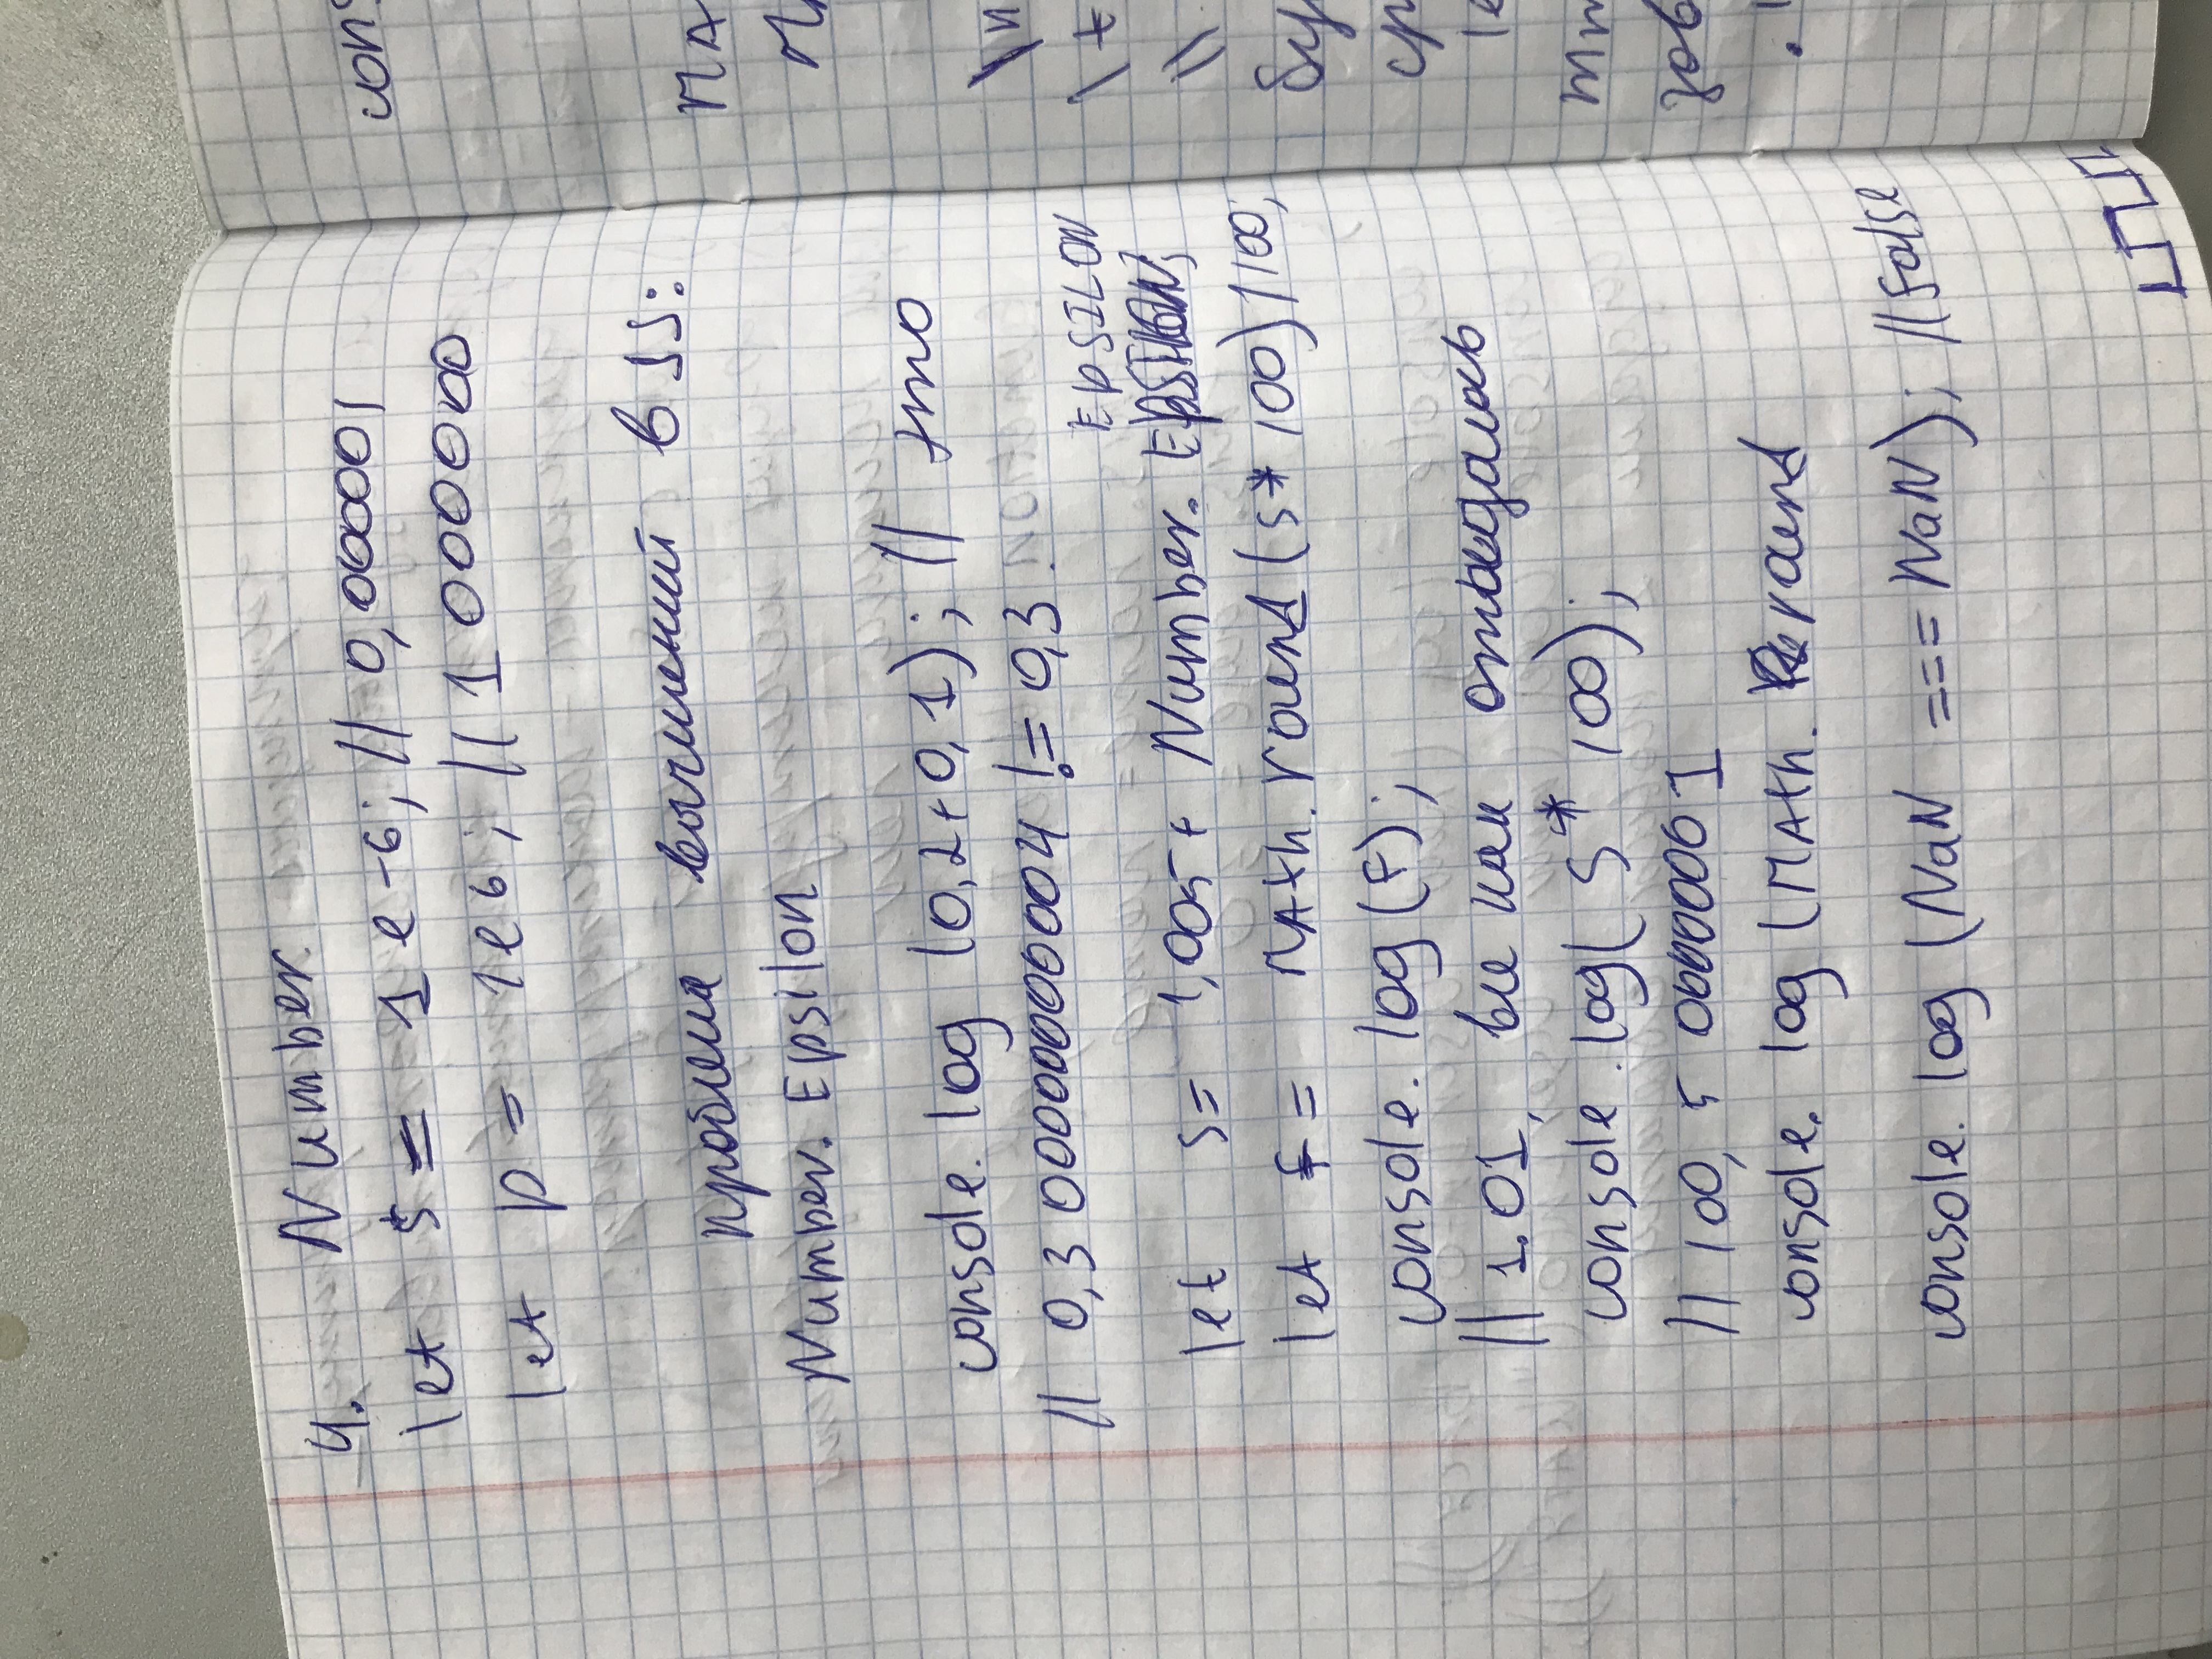 4. Number
let s = 1e-6; // 0,000001
let p = 1e6; // 1000000
проблема вычислений в JS:
Number. Epsilon
console. log (0,2+0,1); // это
// 0,300000000004 != 0,3.
EpSILON
let s= 1,005+ Number. EPSILON;
let f = MAth. round (s* 100)/100;
console. log (F);
// 1.01, все как отжидалось
console. log( s* 100);
// 100,50000001
console. log (MAth. round
console. log (NaN === NaN); // False
cons
MA
\n
\t
\\
бу
ср
le
зов